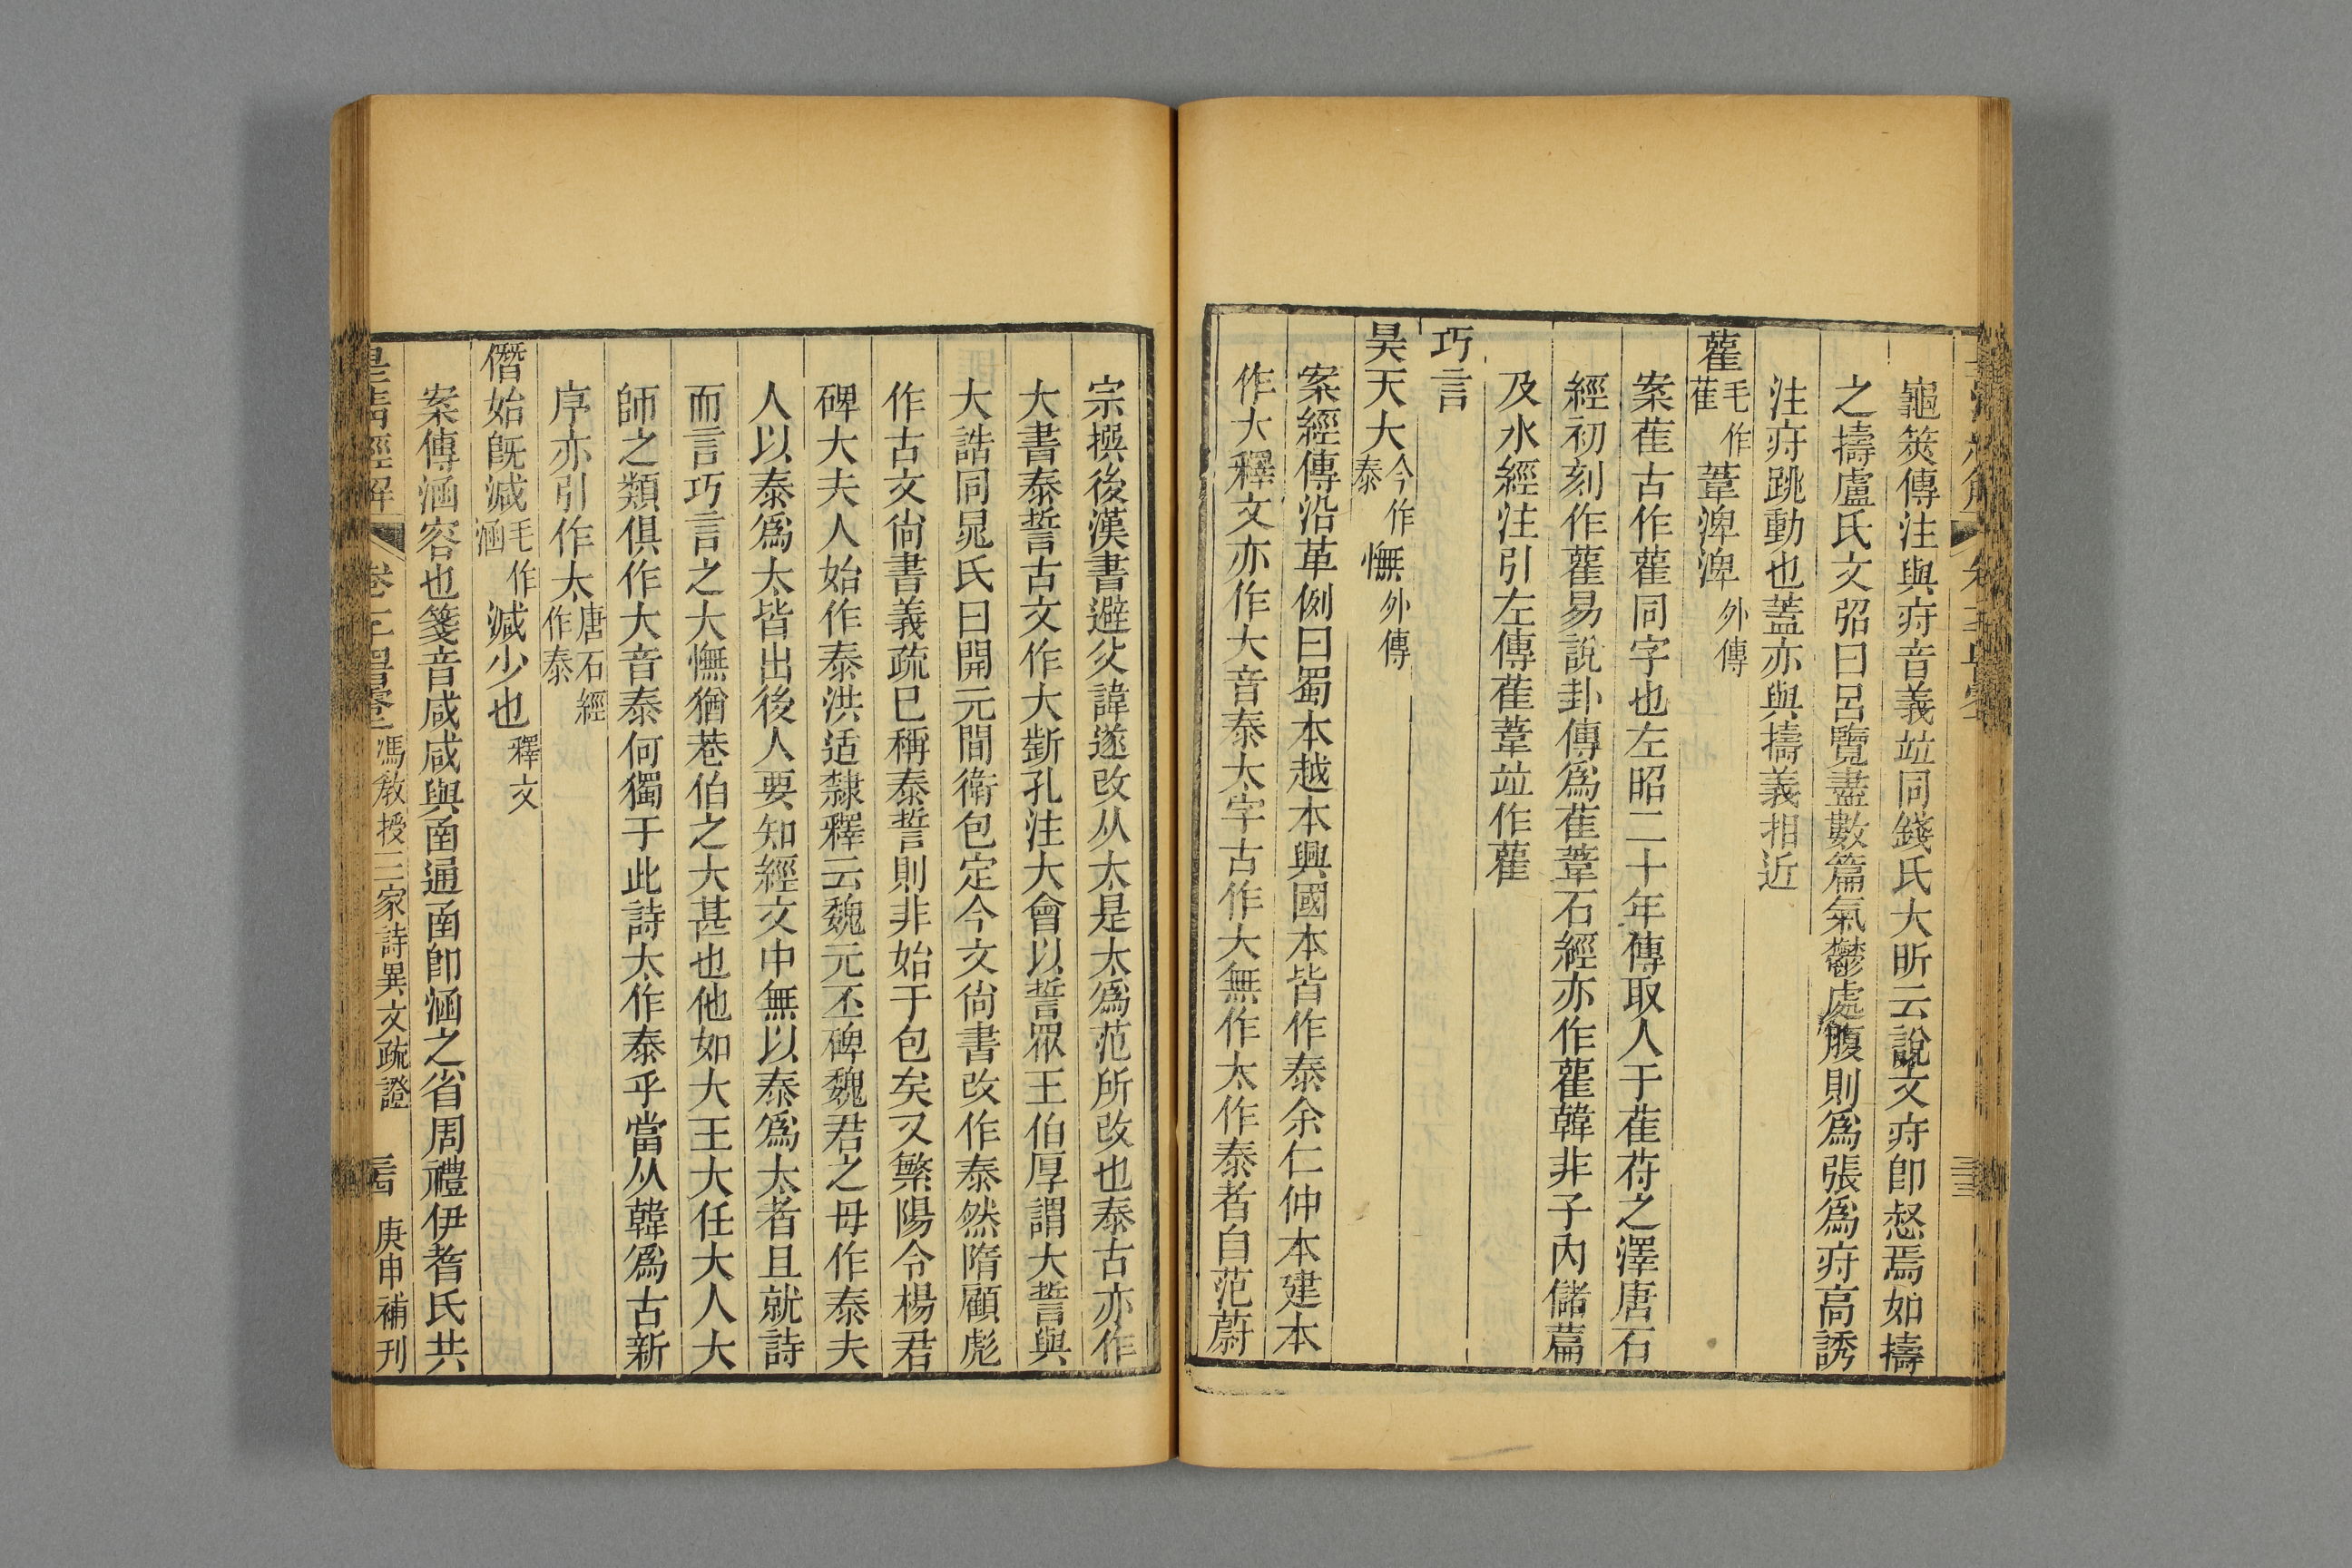 龜筴傳注與疛音義竝同錢氏大昕云說文疛卽惄焉如擣
之擣盧氏文弨曰呂覽盡數篇氣鬱處腹則爲張爲疛高誘
注疛跳動也蓋亦與擣義相近
雚毛作萑葦淠淠外傳
案萑古作雚同字也左昭二十年傳取人于萑苻之澤唐石
經初刻作雚易說卦傳爲萑葦石經亦作雚韓非子內儲篇
及水經注引左傳萑葦竝作雚
巧言
昊天大今作泰憮外傳
案經傳沿革例曰蜀本越本興國本皆作泰余仁仲本建本
作大釋文亦作大音泰太字古作大無作太作泰者自范蔚
宗撰後漢書避父諱遂改从太是太爲范所改也泰古亦作
大書泰誓古文作大斵孔注大會以誓眾王伯厚謂大誓與
大誥同晁氏曰開元間衛包定今文尙書改作泰然隋顧彪
作古文尙書義疏巳稱泰誓則非始于包矣又繁陽令楊君
碑大夫人始作泰洪适隸釋云魏元丕碑魏君之母作泰夫
人以泰爲太皆出後人要知經文中無以泰爲太者且就詩
而言巧言之大憮猶巷伯之大甚也他如大王大任大人大
師之類俱作大音泰何獨于此詩太作泰乎當从韓爲古新
序亦引作太唐石經作泰
僭始旣減毛作涵減少也釋文
案傳涵容也箋音咸咸與圅通圅卽涵之省周禮伊耆氏共
皇淸經解 卷 馮敎授三家詩異文疏證 庚申補刊